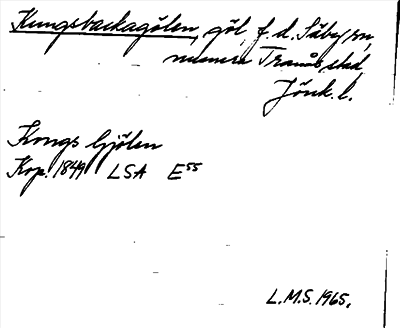 Kungsbackagölen, göl, f.d. Säby sn,
numera Tranås stad,
Jönk. l.
Kongs Gjölen
Kop. 1849 LSA E55
L.M.S. 1965.